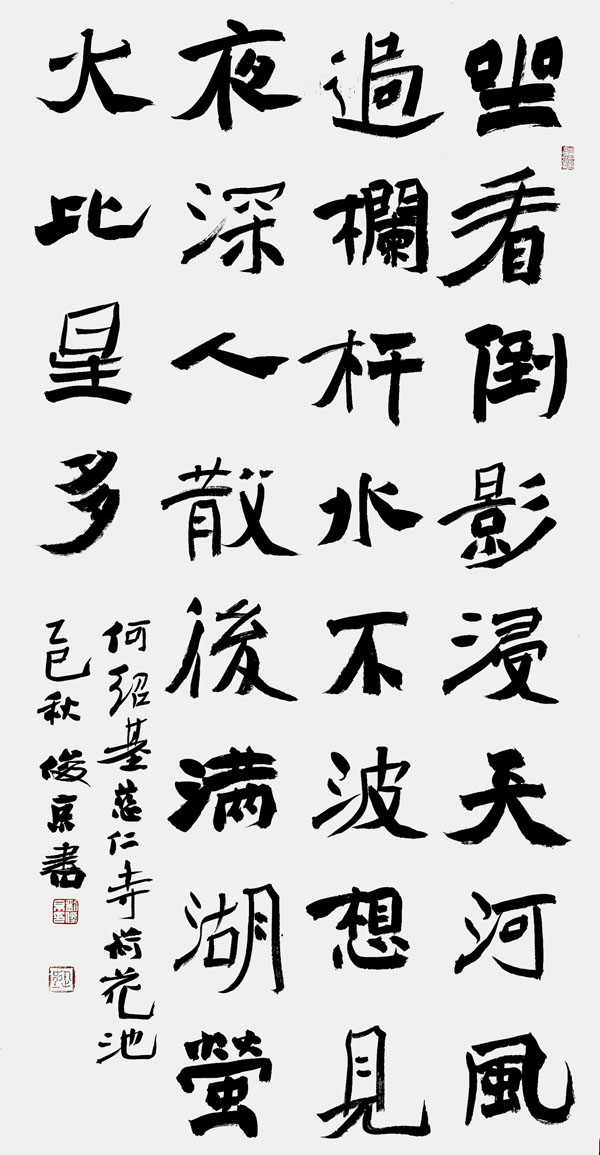 坐看倒影浸天河風
過欄杆水不波想見
夜深人散後满湖螢
火比星多
何紹基慈仁寺荷花池
乙巳秋俊京書